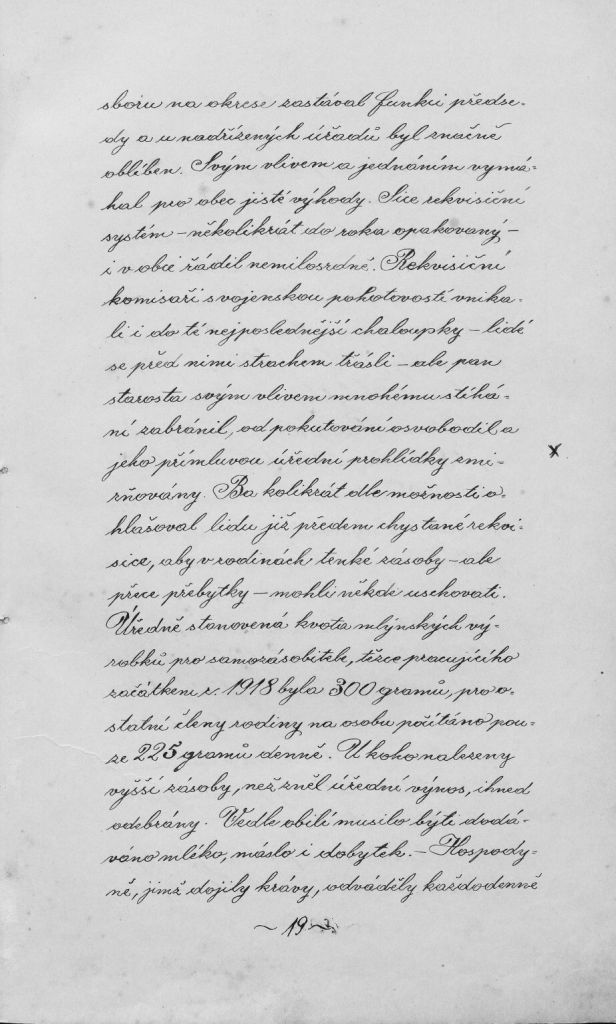 sboru na okrese zastával funkci předse-
dy a u nadřízených úřadů byl značně
oblíben. Svým vlivem a jednáním vymá-
hal pro obec jisté výhody. Sice rekvisiční
systém – několikrát do roka opakovaný –
i v obci řádil nemilosrdně. Rekvisiční
komisaři s vojenskou pohotovostí vnika-
li i do té nejposlednější chaloupky – lidé
se před nimi strachem třásli – ale pan
starosta svým vlivem mnohému stíhá-
ní zabránil, od pokutování osvobodil a
jeho přímluvou úřední prohlídky zmi-
rňovány. Ba kolikrát dle možnosti o-
hlašoval lidu již předem chystané rekvi-
sice, aby v rodinách tenké zásoby – ale
přece přebytky – mohli někde uschovati.
Úředně stanovená kvota mlýnských vý-
robků pro samozásobitele, těžce pracujícího
začátkem r. 1918 byla 300 gramů, pro o-
statní členy rodiny na osobu počítáno pou-
ze 225 gramů denně. U koho nalezeny
vyšší zásoby, než zněl úřední výnos, ihned
odebrány. Vedle obilí musilo býti dodá-
váno mléko, máslo i dobytek. – Hospody-
ně, jimž dojily krávy, odváděly každodenně
~ 19 ~